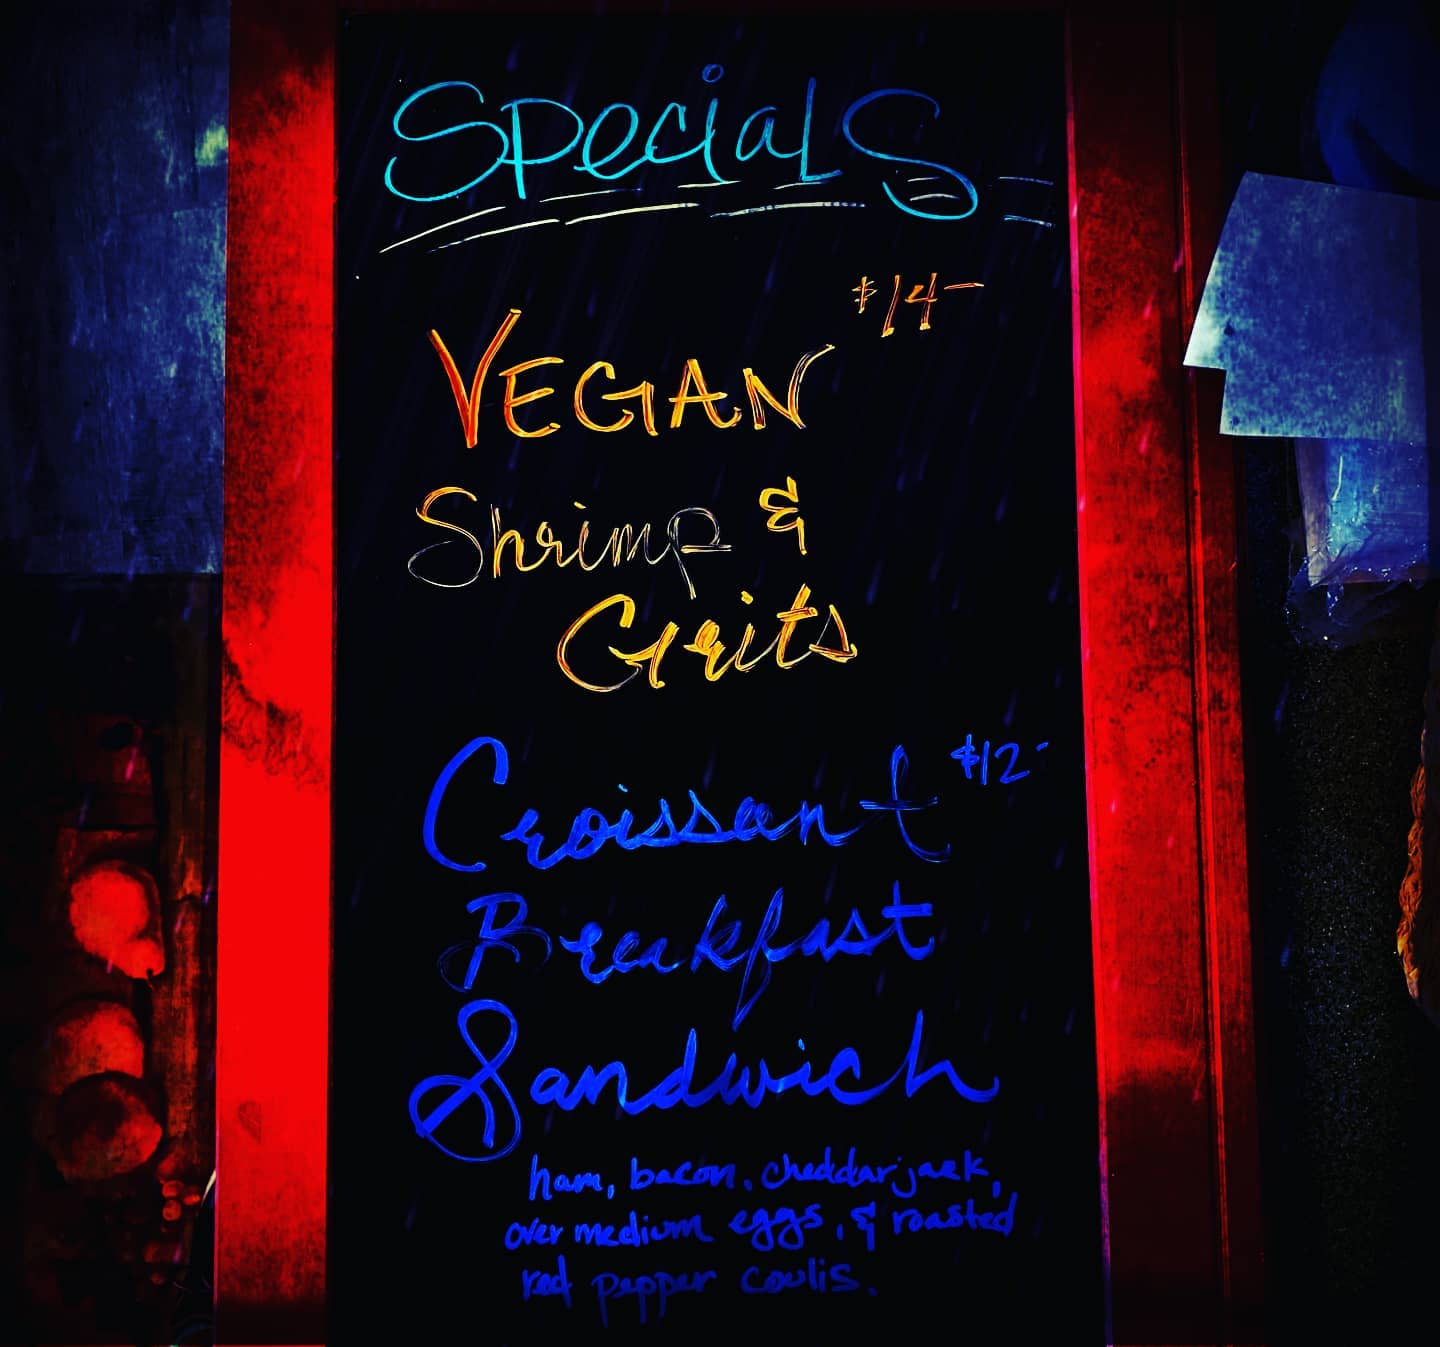 Specials
$14-
VEGAN
Shrimp &
Grits
$12-
Croissant
Breakfast
Sandwich
ham, bacon, cheddar jack,
over medium eggs, & roasted
red pepper coulis.